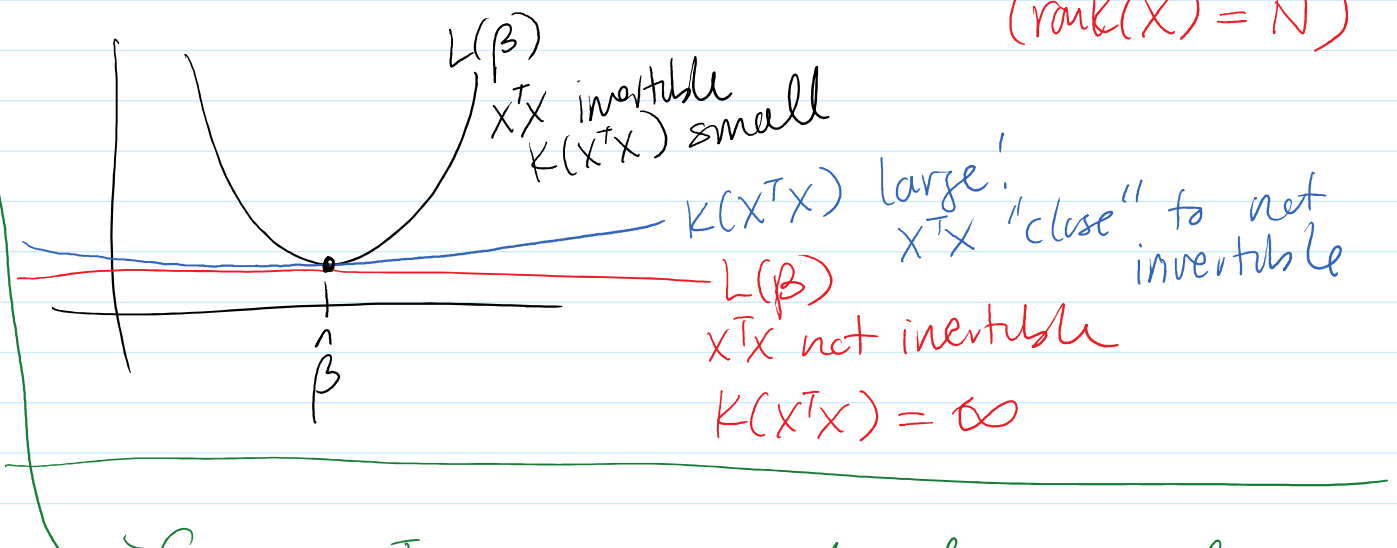 (rank(X) = N)
L(β)
XᵀX invertible
K(XᵀX) small
K(XᵀX) large!
XᵀX "close" to not
invertible
L(β)
XᵀX not inertible
K(XᵀX) = ∞
β̂